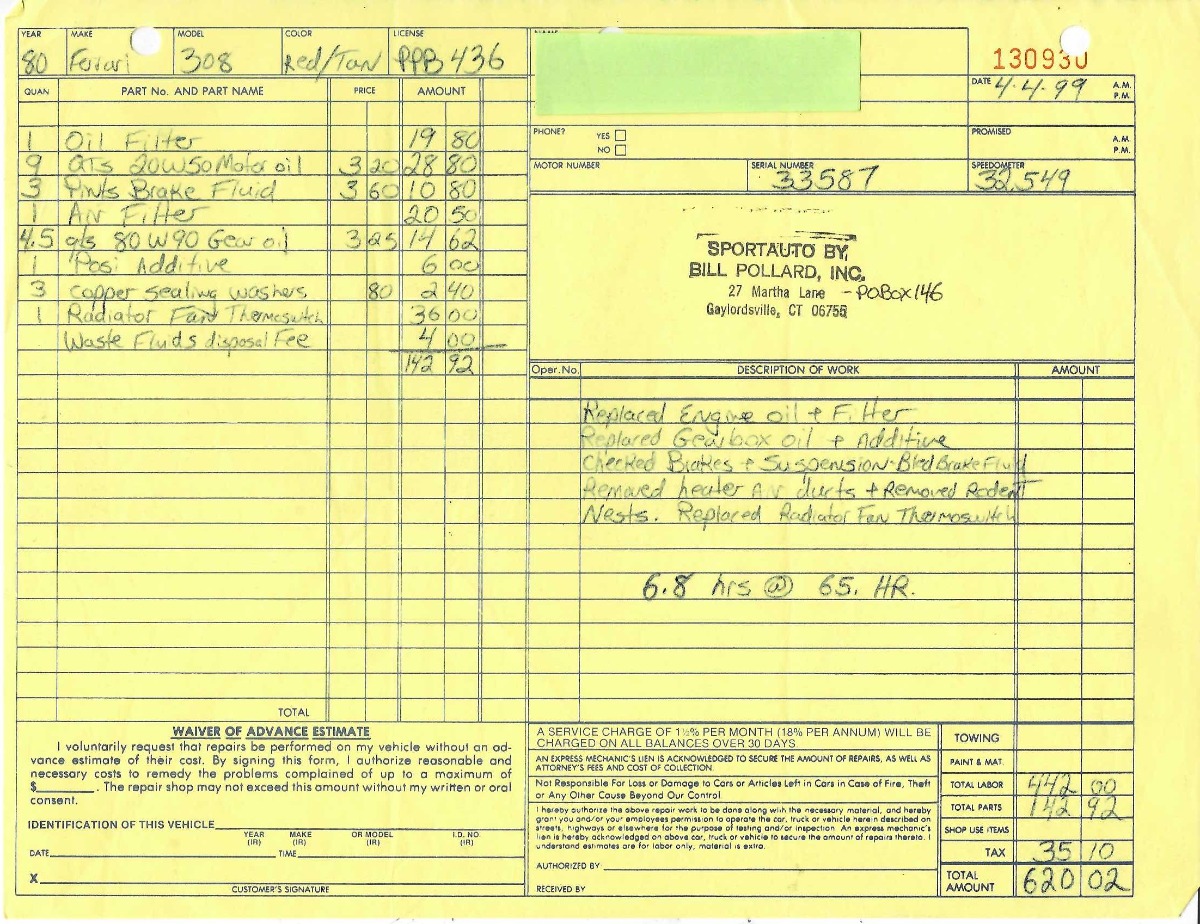 YEAR MAKE MODEL COLOR LICENSE
80 Ferrari 308 Red/Tan PPB 436
130930
DATE 4·4·99 A.M. P.M.
QUAN PART No. AND PART NAME PRICE AMOUNT
1 Oil Filter 19 80
9 QTs 20W50 Motor oil 3 20 28 80
3 Pints Brake Fluid 3 60 10 80
1 Air Filter 20 50
4.5 qts 80W90 Gear oil 3 25 14 62
1 Posi Additive 6 00
3 copper sealing washers 80 2 40
1 Radiator Fan Thermoswitch 36 00
Waste Fluids disposal Fee 4 00
142 92
TOTAL
PHONE? YES NO
PROMISED A.M. P.M.
MOTOR NUMBER SERIAL NUMBER SPEEDOMETER
33587 32,549
SPORTAUTO BY
BILL POLLARD, INC.
27 Martha Lane - PO Box 146
Gaylordsville, CT 06755
Oper. No. DESCRIPTION OF WORK AMOUNT
Replaced Engine oil + Filter
Replaced Gearbox oil + Additive
Checked Brakes + Suspension - Bled Brake Fluid
Removed heater Air ducts + Removed Rodent
Nests. Replaced Radiator Fan Thermoswitch
6.8 hrs @ 65. HR.
WAIVER OF ADVANCE ESTIMATE
I voluntarily request that repairs be performed on my vehicle without an ad-
vance estimate of their cost. By signing this form, I authorize reasonable and
necessary costs to remedy the problems complained of up to a maximum of
$________. The repair shop may not exceed this amount without my written or oral
consent.
IDENTIFICATION OF THIS VEHICLE
YEAR (IR) MAKE (IR) OR MODEL (IR) I.D. NO. (IR)
DATE TIME
X
CUSTOMER'S SIGNATURE
A SERVICE CHARGE OF 1½% PER MONTH (18% PER ANNUM) WILL BE
CHARGED ON ALL BALANCES OVER 30 DAYS
AN EXPRESS MECHANIC'S LIEN IS ACKNOWLEDGED TO SECURE THE AMOUNT OF REPAIRS, AS WELL AS
ATTORNEY'S FEES AND COST OF COLLECTION.
Not Responsible For Loss or Damage to Cars or Articles Left in Cars in Case of Fire, Theft
or Any Other Cause Beyond Our Control
I hereby authorize the above repair work to be done along with the necessary material, and hereby
grant you and/or your employees permission to operate the car, truck or vehicle herein described on
streets, highways or elsewhere for the purpose of testing and/or inspection. An express mechanic's
lien is hereby acknowledged on above car, truck or vehicle to secure the amount of repairs thereto. I
understand estimates are for labor only, material is extra.
AUTHORIZED BY
RECEIVED BY
TOWING
PAINT & MAT.
TOTAL LABOR 442 00
TOTAL PARTS 142 92
SHOP USE ITEMS
TAX 35 10
TOTAL AMOUNT 620 02